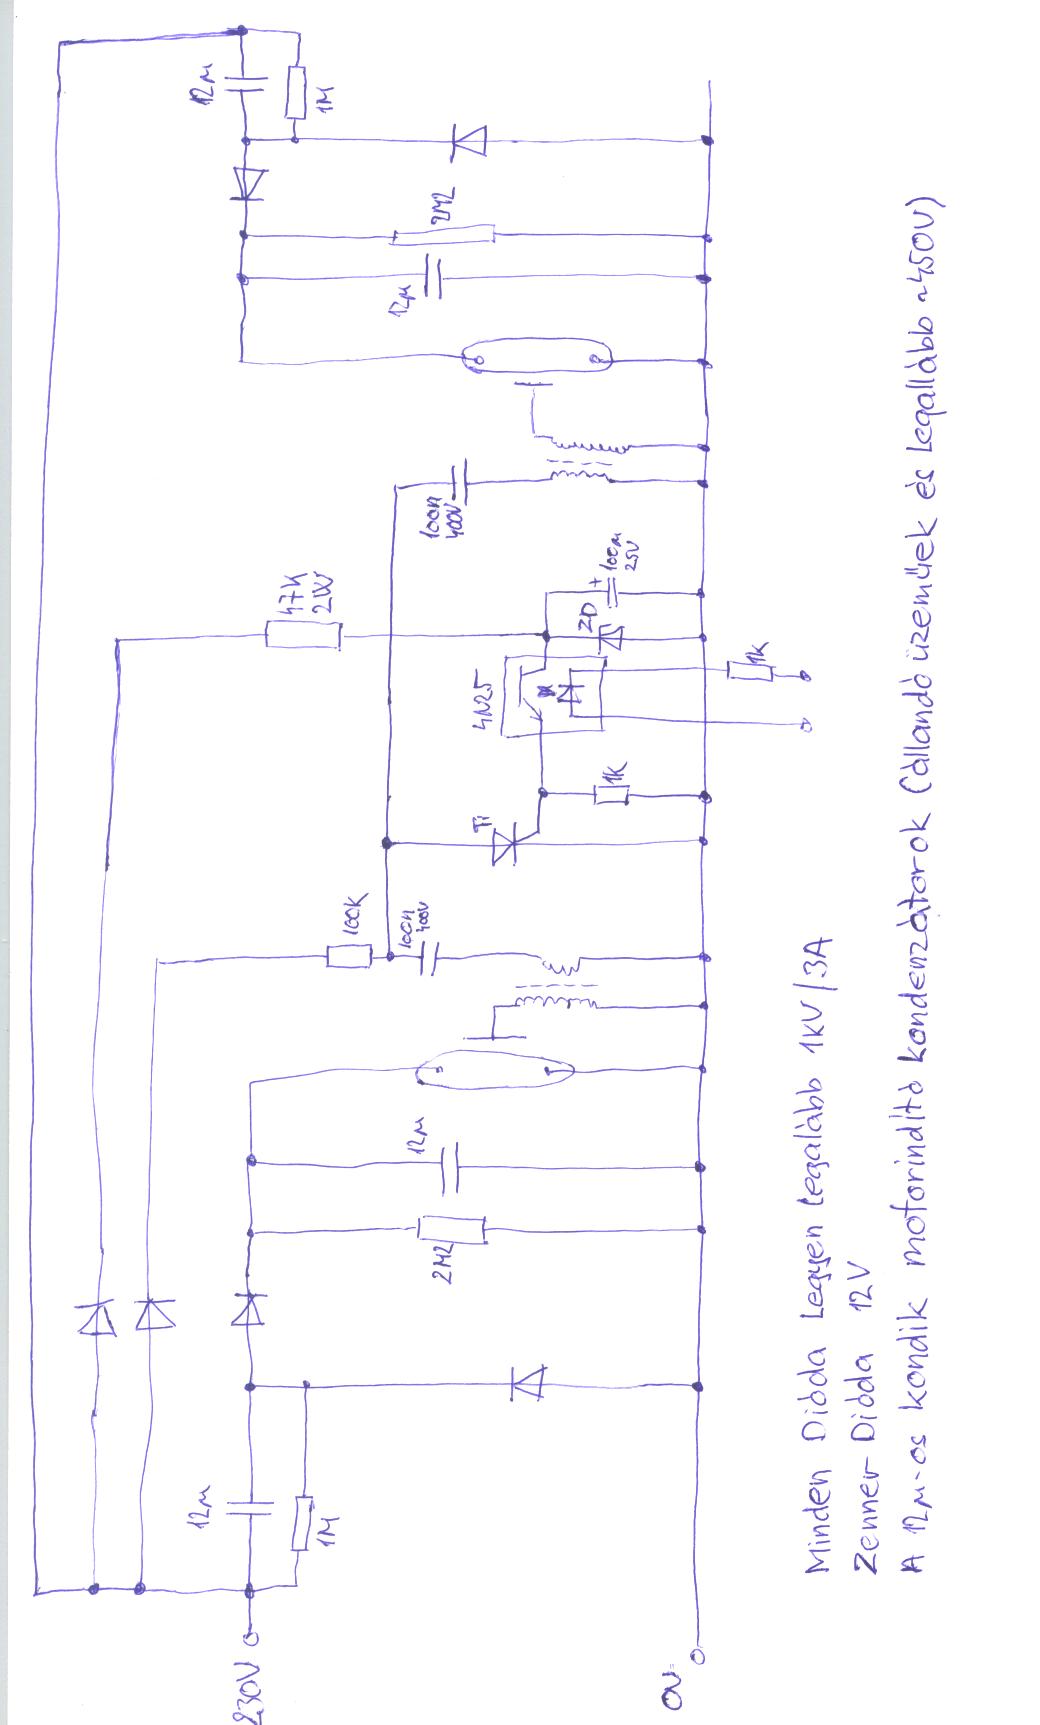 12µ
1M
2M2
12µ
100n
400V
47K
2W
100µ
25V
+
ZD
4N25
1K
1K
Ti
100K
100n
400V
12µ
2M2
12µ
1M
230V
0V
Minden Dióda Legyen legalább 1kV/3A
Zenner Dióda 12V
A 12µ-os kondik motorindító kondenzátorok (állandó üzeműek és legallább ~450V)